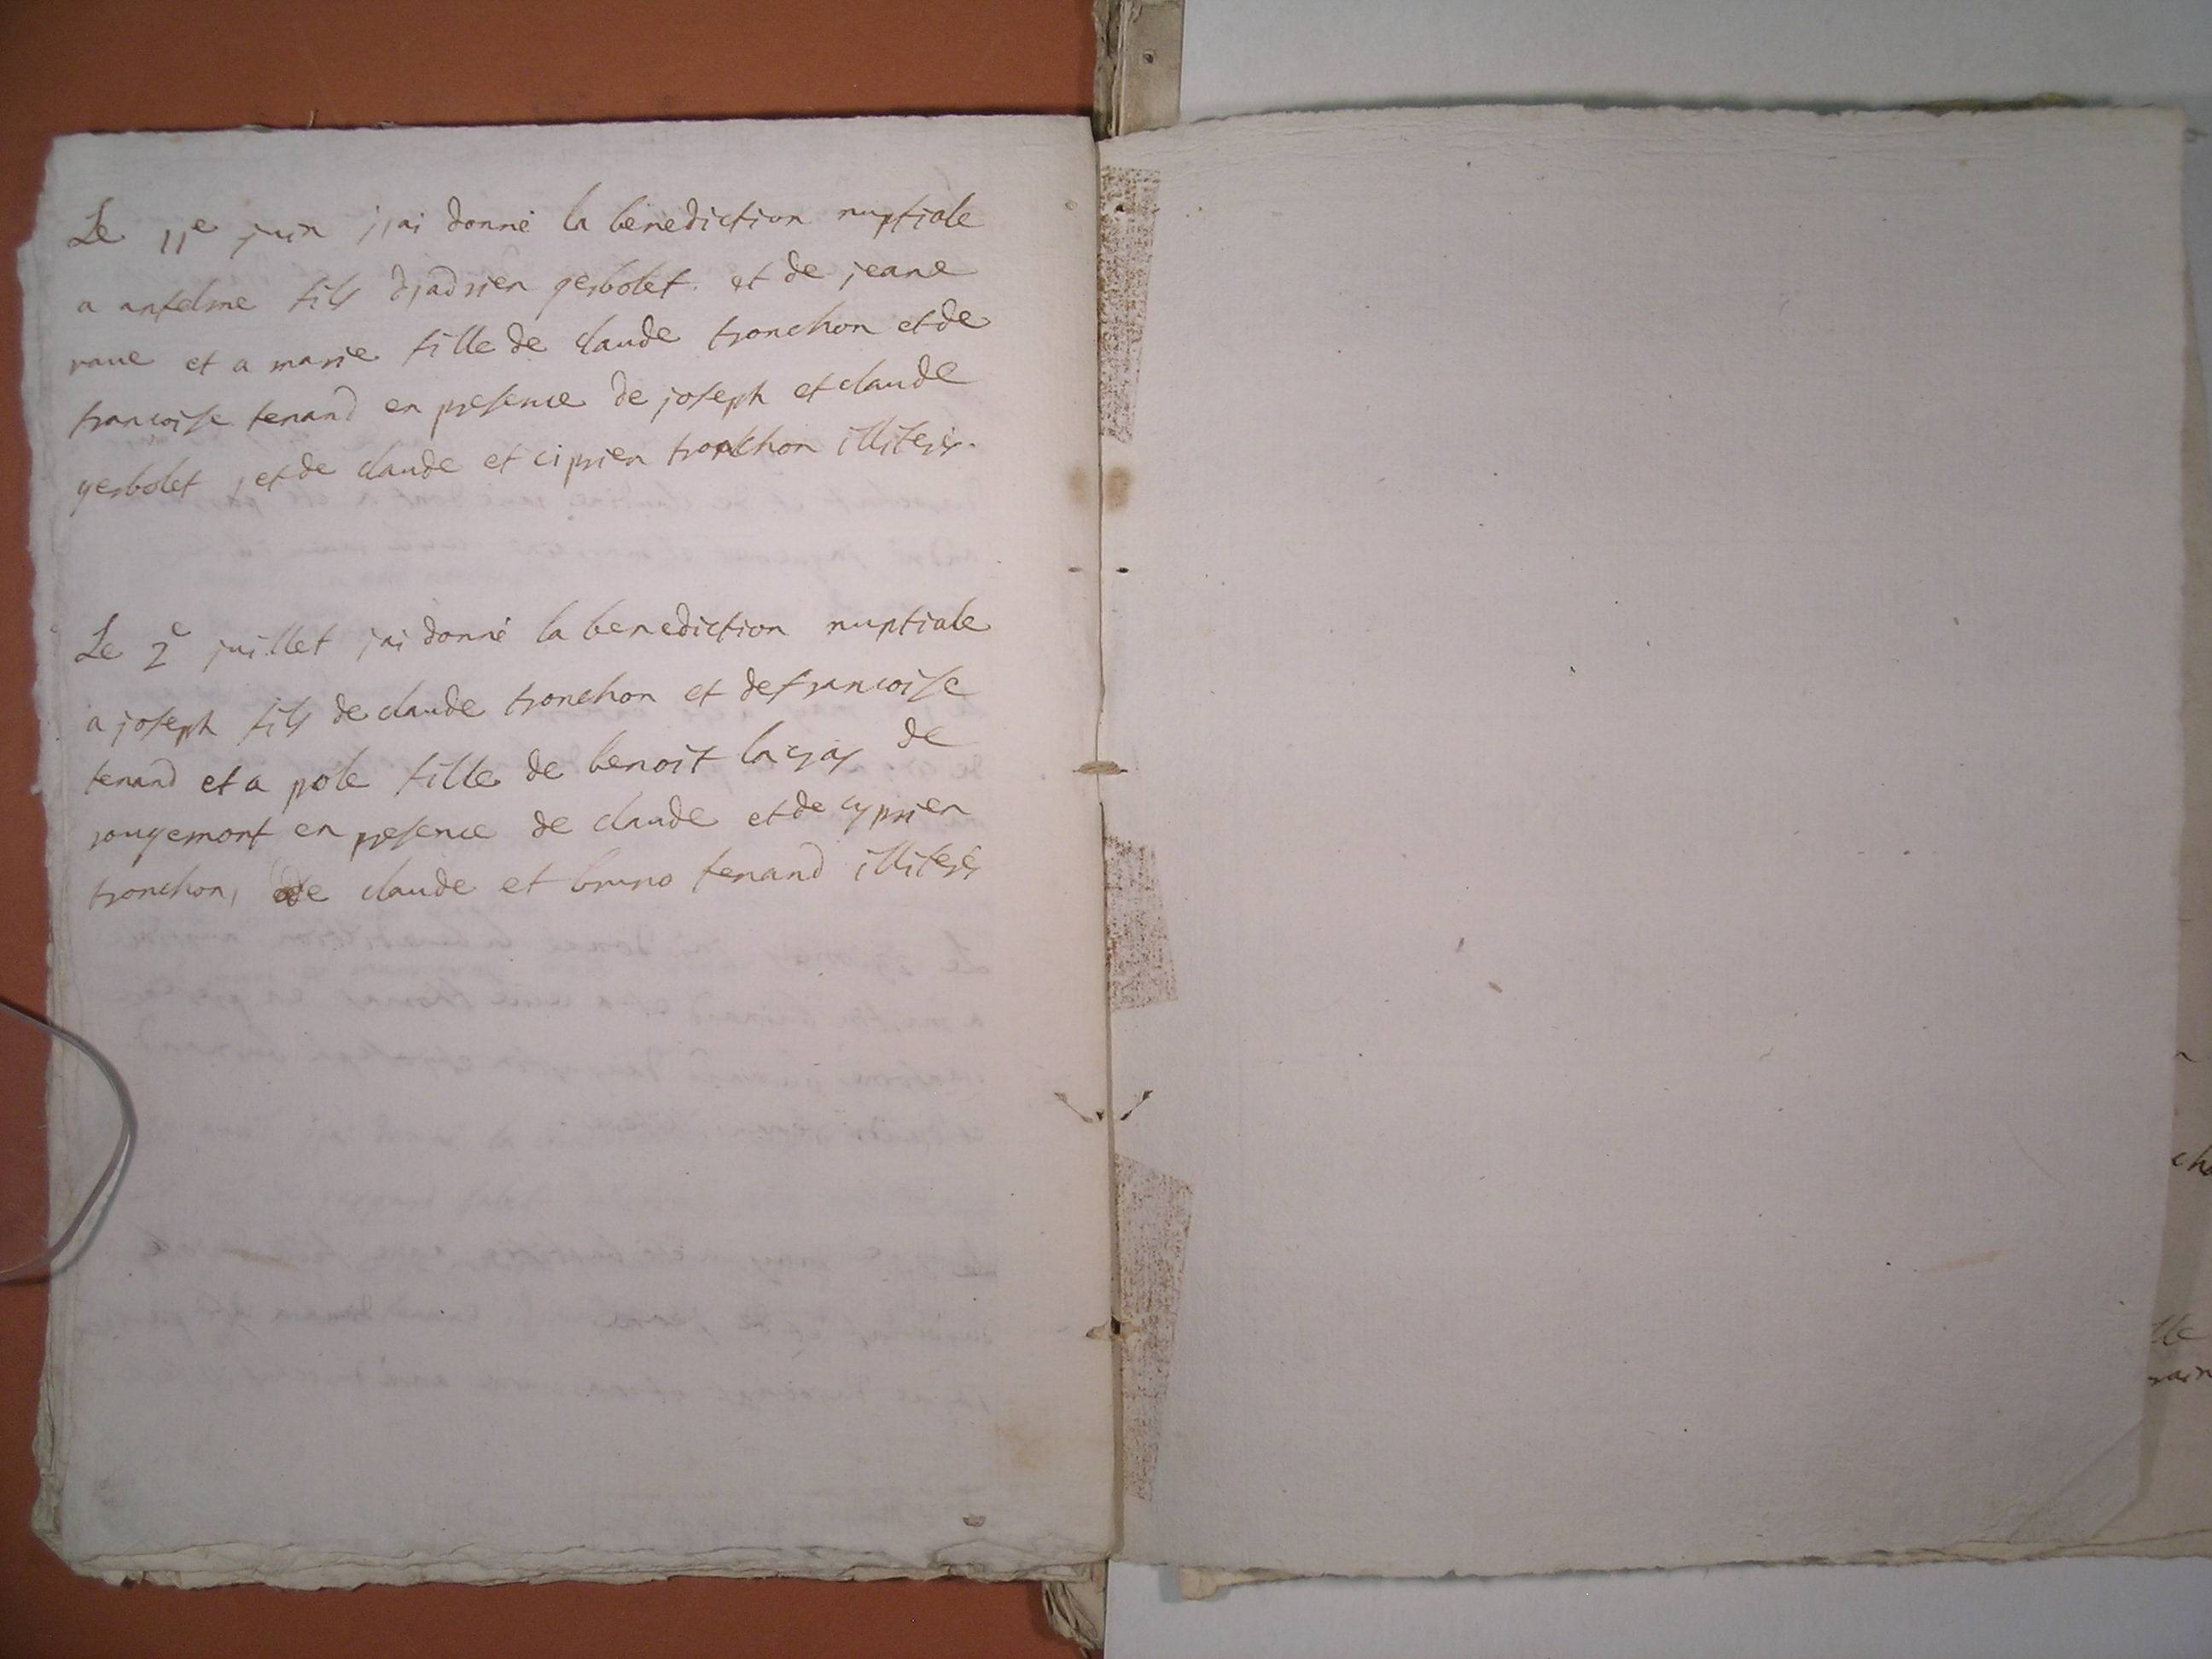 Le 11e juin j'ai donné la benediction nuptiale
a antelme fils d'adrien gerbolet. et de jeane
raue et a marie fille de claude tronchon et de
francoise tenand en presence de joseph et claude
gerbolet, et de claude et ciprien tronchon illiterés.
Le 2e juillet j'ai donné la benediction nuptiale
a joseph fils de claude tronchon et de francoise
tenand et a pole fille de benoit lagras de
rougemont en presence de claude et de cyprien
tronchon, de claude et bruno tenand illiterés